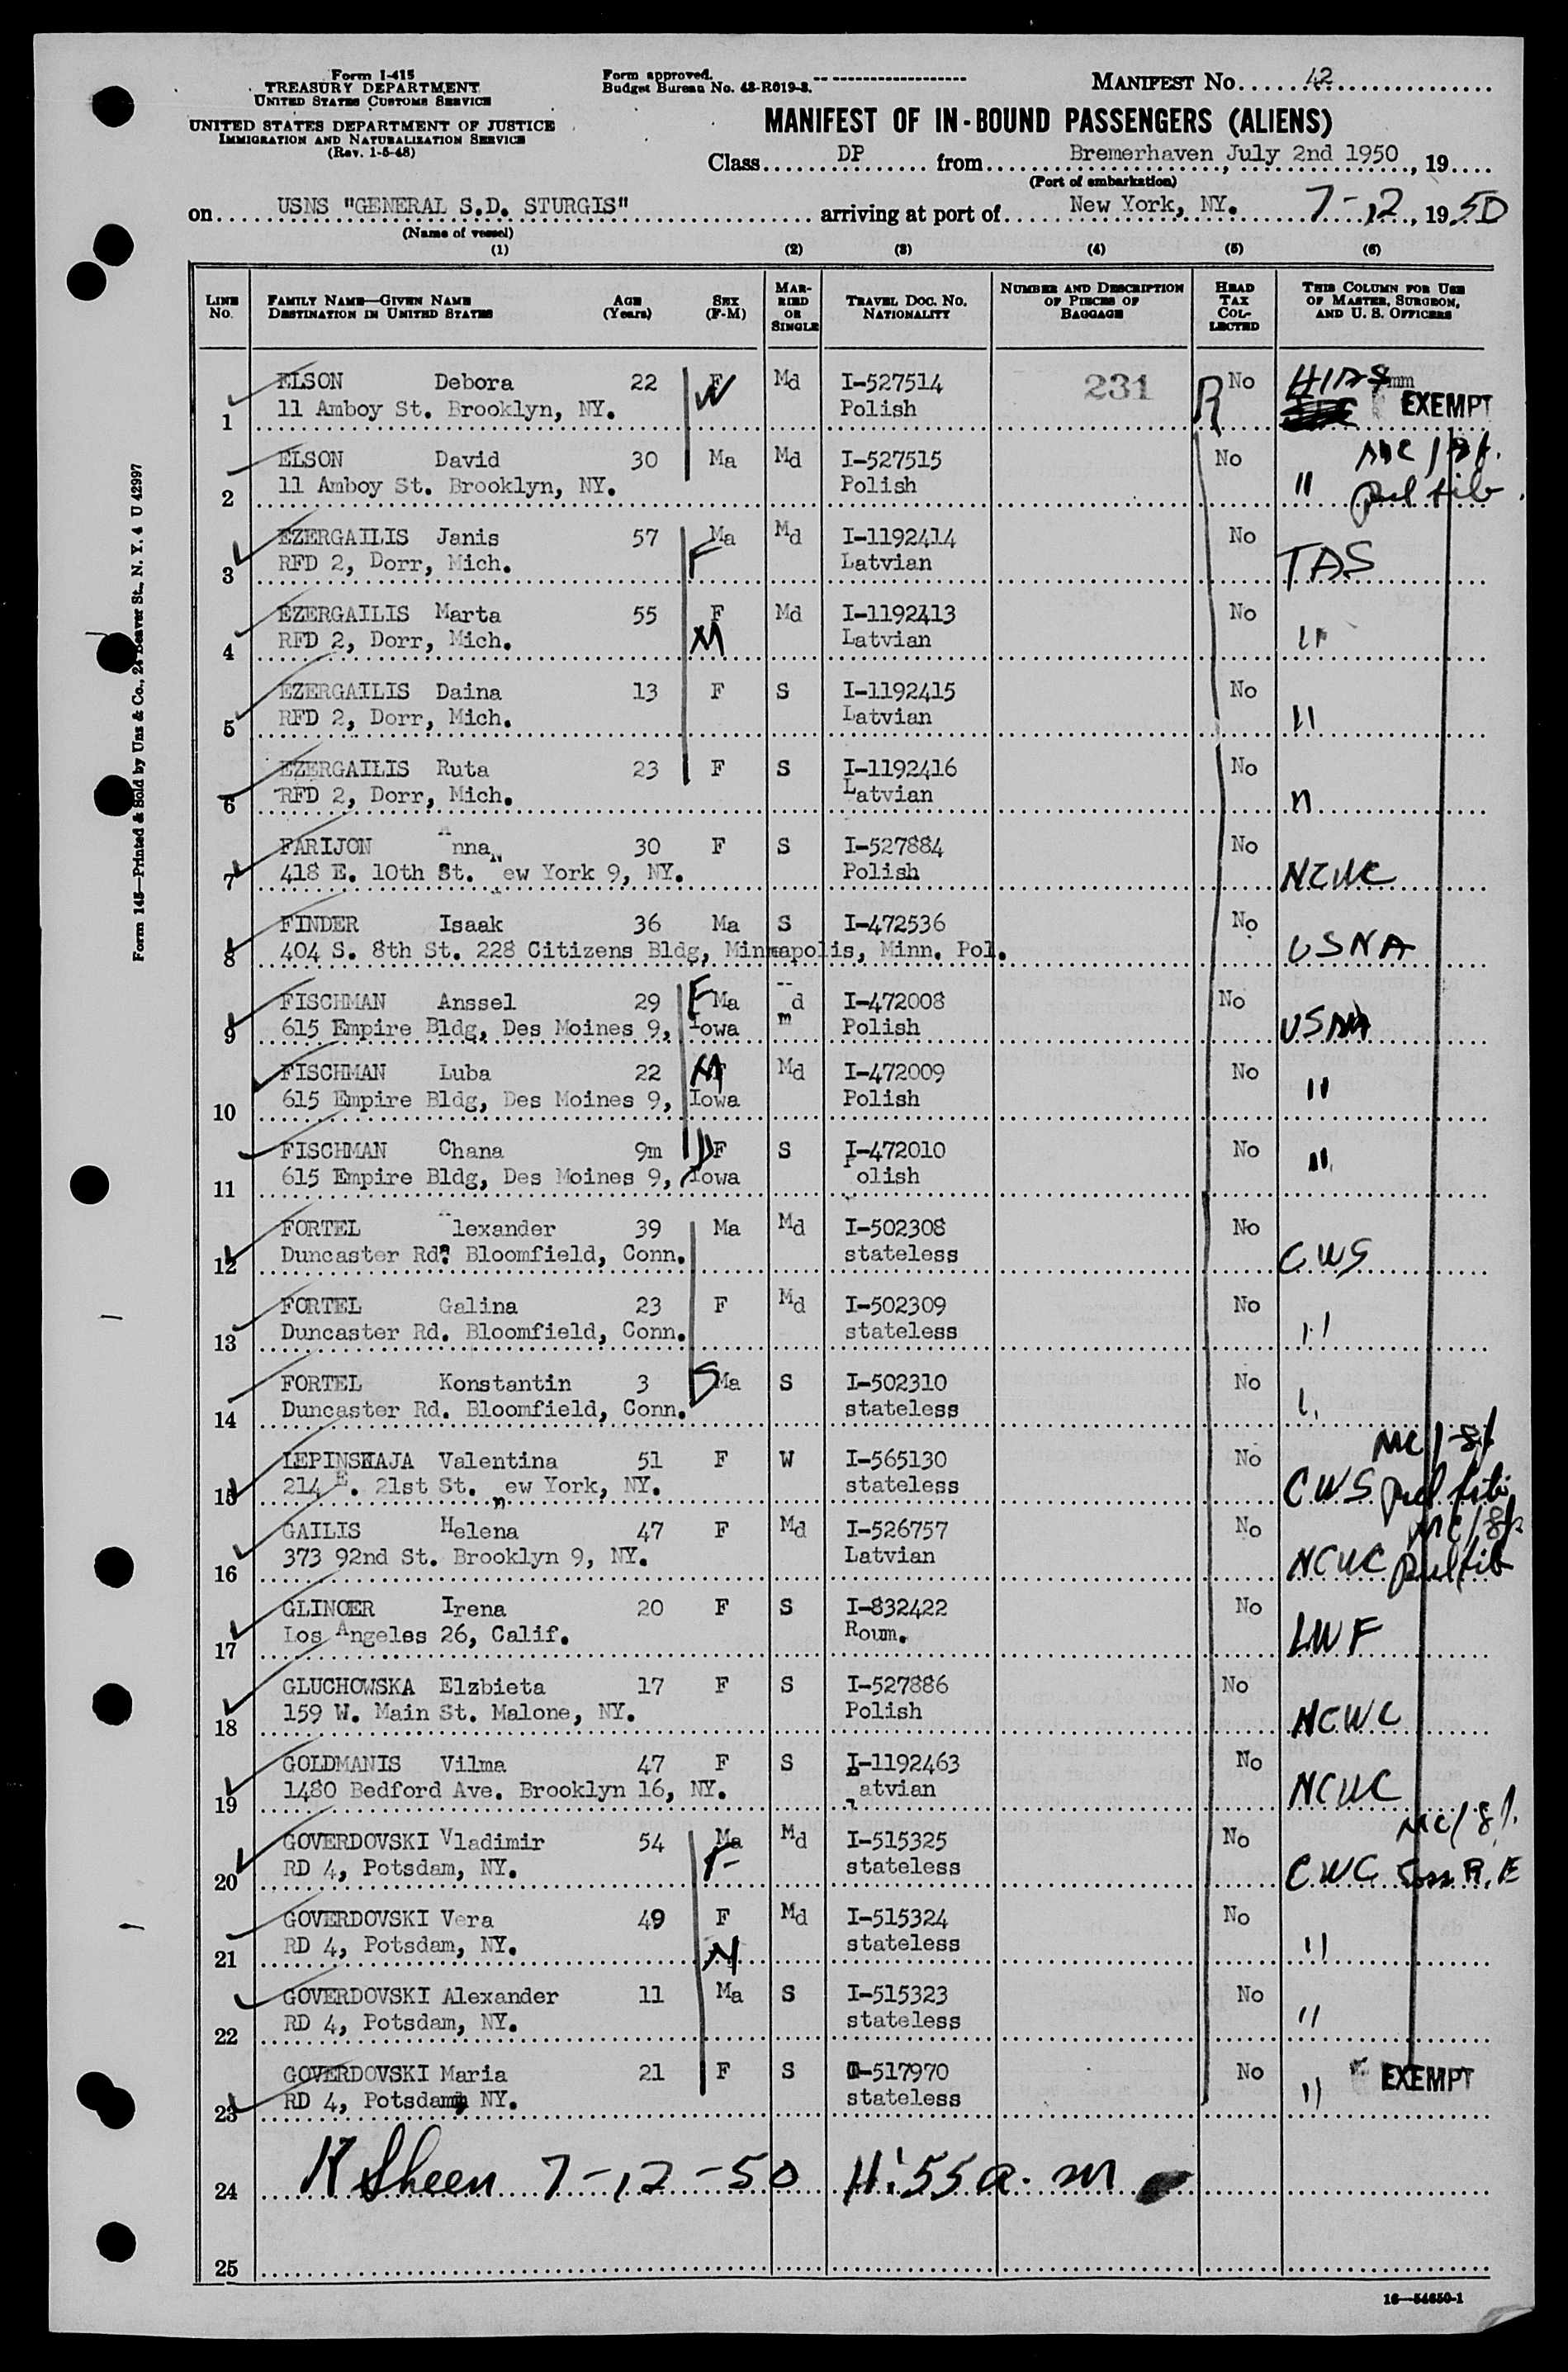 Form I-415
TREASURY DEPARTMENT
UNITED STATES CUSTOMS SERVICE
UNITED STATES DEPARTMENT OF JUSTICE
IMMIGRATION AND NATURALIZATION SERVICE
(Rev. 1-5-48)
Form approved.
Budget Bureau No. 43-R019-3.
MANIFEST No. 42
MANIFEST OF IN-BOUND PASSENGERS (ALIENS)
Class DP from Bremerhaven, July 2nd 1950, 19
(Port of embarkation)
on USNS "GENERAL S.D. STURGIS" arriving at port of New York, NY. 7-12, 1950
(Name of vessel)
(1) (2) (3) (4) (5) (6)
LINE No. FAMILY NAME—GIVEN NAME DESTINATION IN UNITED STATES AGE (Years) SEX (F-M) MARRIED OR SINGLE TRAVEL DOC. NO. NATIONALITY NUMBER AND DESCRIPTION OF PIECES OF BAGGAGE HEAD TAX COLLECTED THIS COLUMN FOR USE OF MASTER, SURGEON, AND U. S. OFFICERS
ELSON Debora 22 F W Md I-527514 231 R No HIAS
1 11 Amboy St. Brooklyn, NY. Polish EXEMPT
ELSON David 30 Ma Md I-527515 No
2 11 Amboy St. Brooklyn, NY. Polish "
EZERGAILIS Janis 57 Ma Md I-1192414 No
3 RFD 2, Dorr, Mich. F Latvian TAS
EZERGAILIS Marta 55 F Md I-1192413 No
4 RFD 2, Dorr, Mich. M Latvian "
EZERGAILIS Daina 13 F S I-1192415 No
5 RFD 2, Dorr, Mich. Latvian "
EZERGAILIS Ruta 23 F S I-1192416 No
6 RFD 2, Dorr, Mich. Latvian "
FARIJON Anna 30 F S I-527884 No
7 418 E. 10th St. New York 9, NY. Polish NCWC
FINDER Isaak 36 Ma S I-472536 No
8 404 S. 8th St. 228 Citizens Bldg, Minneapolis, Minn. Pol. USNA
FISCHMAN Anssel 29 F Ma md I-472008 No
9 615 Empire Bldg, Des Moines 9, Iowa Polish USNA
FISCHMAN Luba 22 M Md I-472009 No
10 615 Empire Bldg, Des Moines 9, Iowa Polish "
FISCHMAN Chana 9m D F S I-472010 No
11 615 Empire Bldg, Des Moines 9, Iowa Polish "
FORTEL Alexander 39 Ma Md I-502308 No
12 Duncaster Rd. Bloomfield, Conn. stateless CWS
FORTEL Galina 23 F Md I-502309 No
13 Duncaster Rd. Bloomfield, Conn. stateless "
FORTEL Konstantin 3 S Ma S I-502310 No
14 Duncaster Rd. Bloomfield, Conn. stateless "
LEPINSKAJA Valentina 51 F W I-565130 No
15 214 E. 21st St. new York, NY. stateless CWS
GAILIS Helena 47 F Md I-526757 No
16 373 92nd St. Brooklyn 9, NY. Latvian NCWC
GLINCER Irena 20 F S I-832422 No
17 Los Angeles 26, Calif. Roum. LWF
GLUCHOWSKA Elzbieta 17 F S I-527886 No
18 159 W. Main St. Malone, NY. Polish NCWC
GOLDMANIS Vilma 47 F S I-1192463 No
19 1480 Bedford Ave. Brooklyn 16, NY. Latvian NCWC
GOVERDOVSKI Vladimir 54 Ma Md I-515325 No
20 RD 4, Potsdam, NY. F stateless
GOVERDOVSKI Vera 49 F Md I-515324 No
21 RD 4, Potsdam, NY. M stateless "
GOVERDOVSKI Alexander 11 Ma S I-515323 No
22 RD 4, Potsdam, NY. stateless "
GOVERDOVSKI Maria 21 F S I-517970 No EXEMPT
23 RD 4, Potsdam, NY. stateless "
24 K Sheen 7-12-50 11:55 a.m
25
16—54650-1
Form 145—Printed & Sold by Unz & Co., 24 Beaver St., N. Y. 4 U 42997